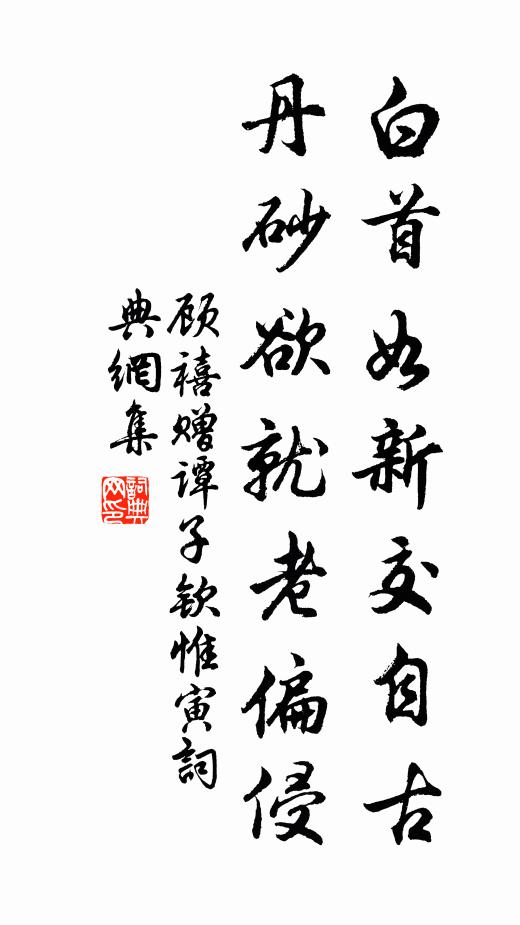 白首如新交自古
丹砂欲就老偏侵
顾禧赠谭子钦惟寅詞
典網集
詞典
网印